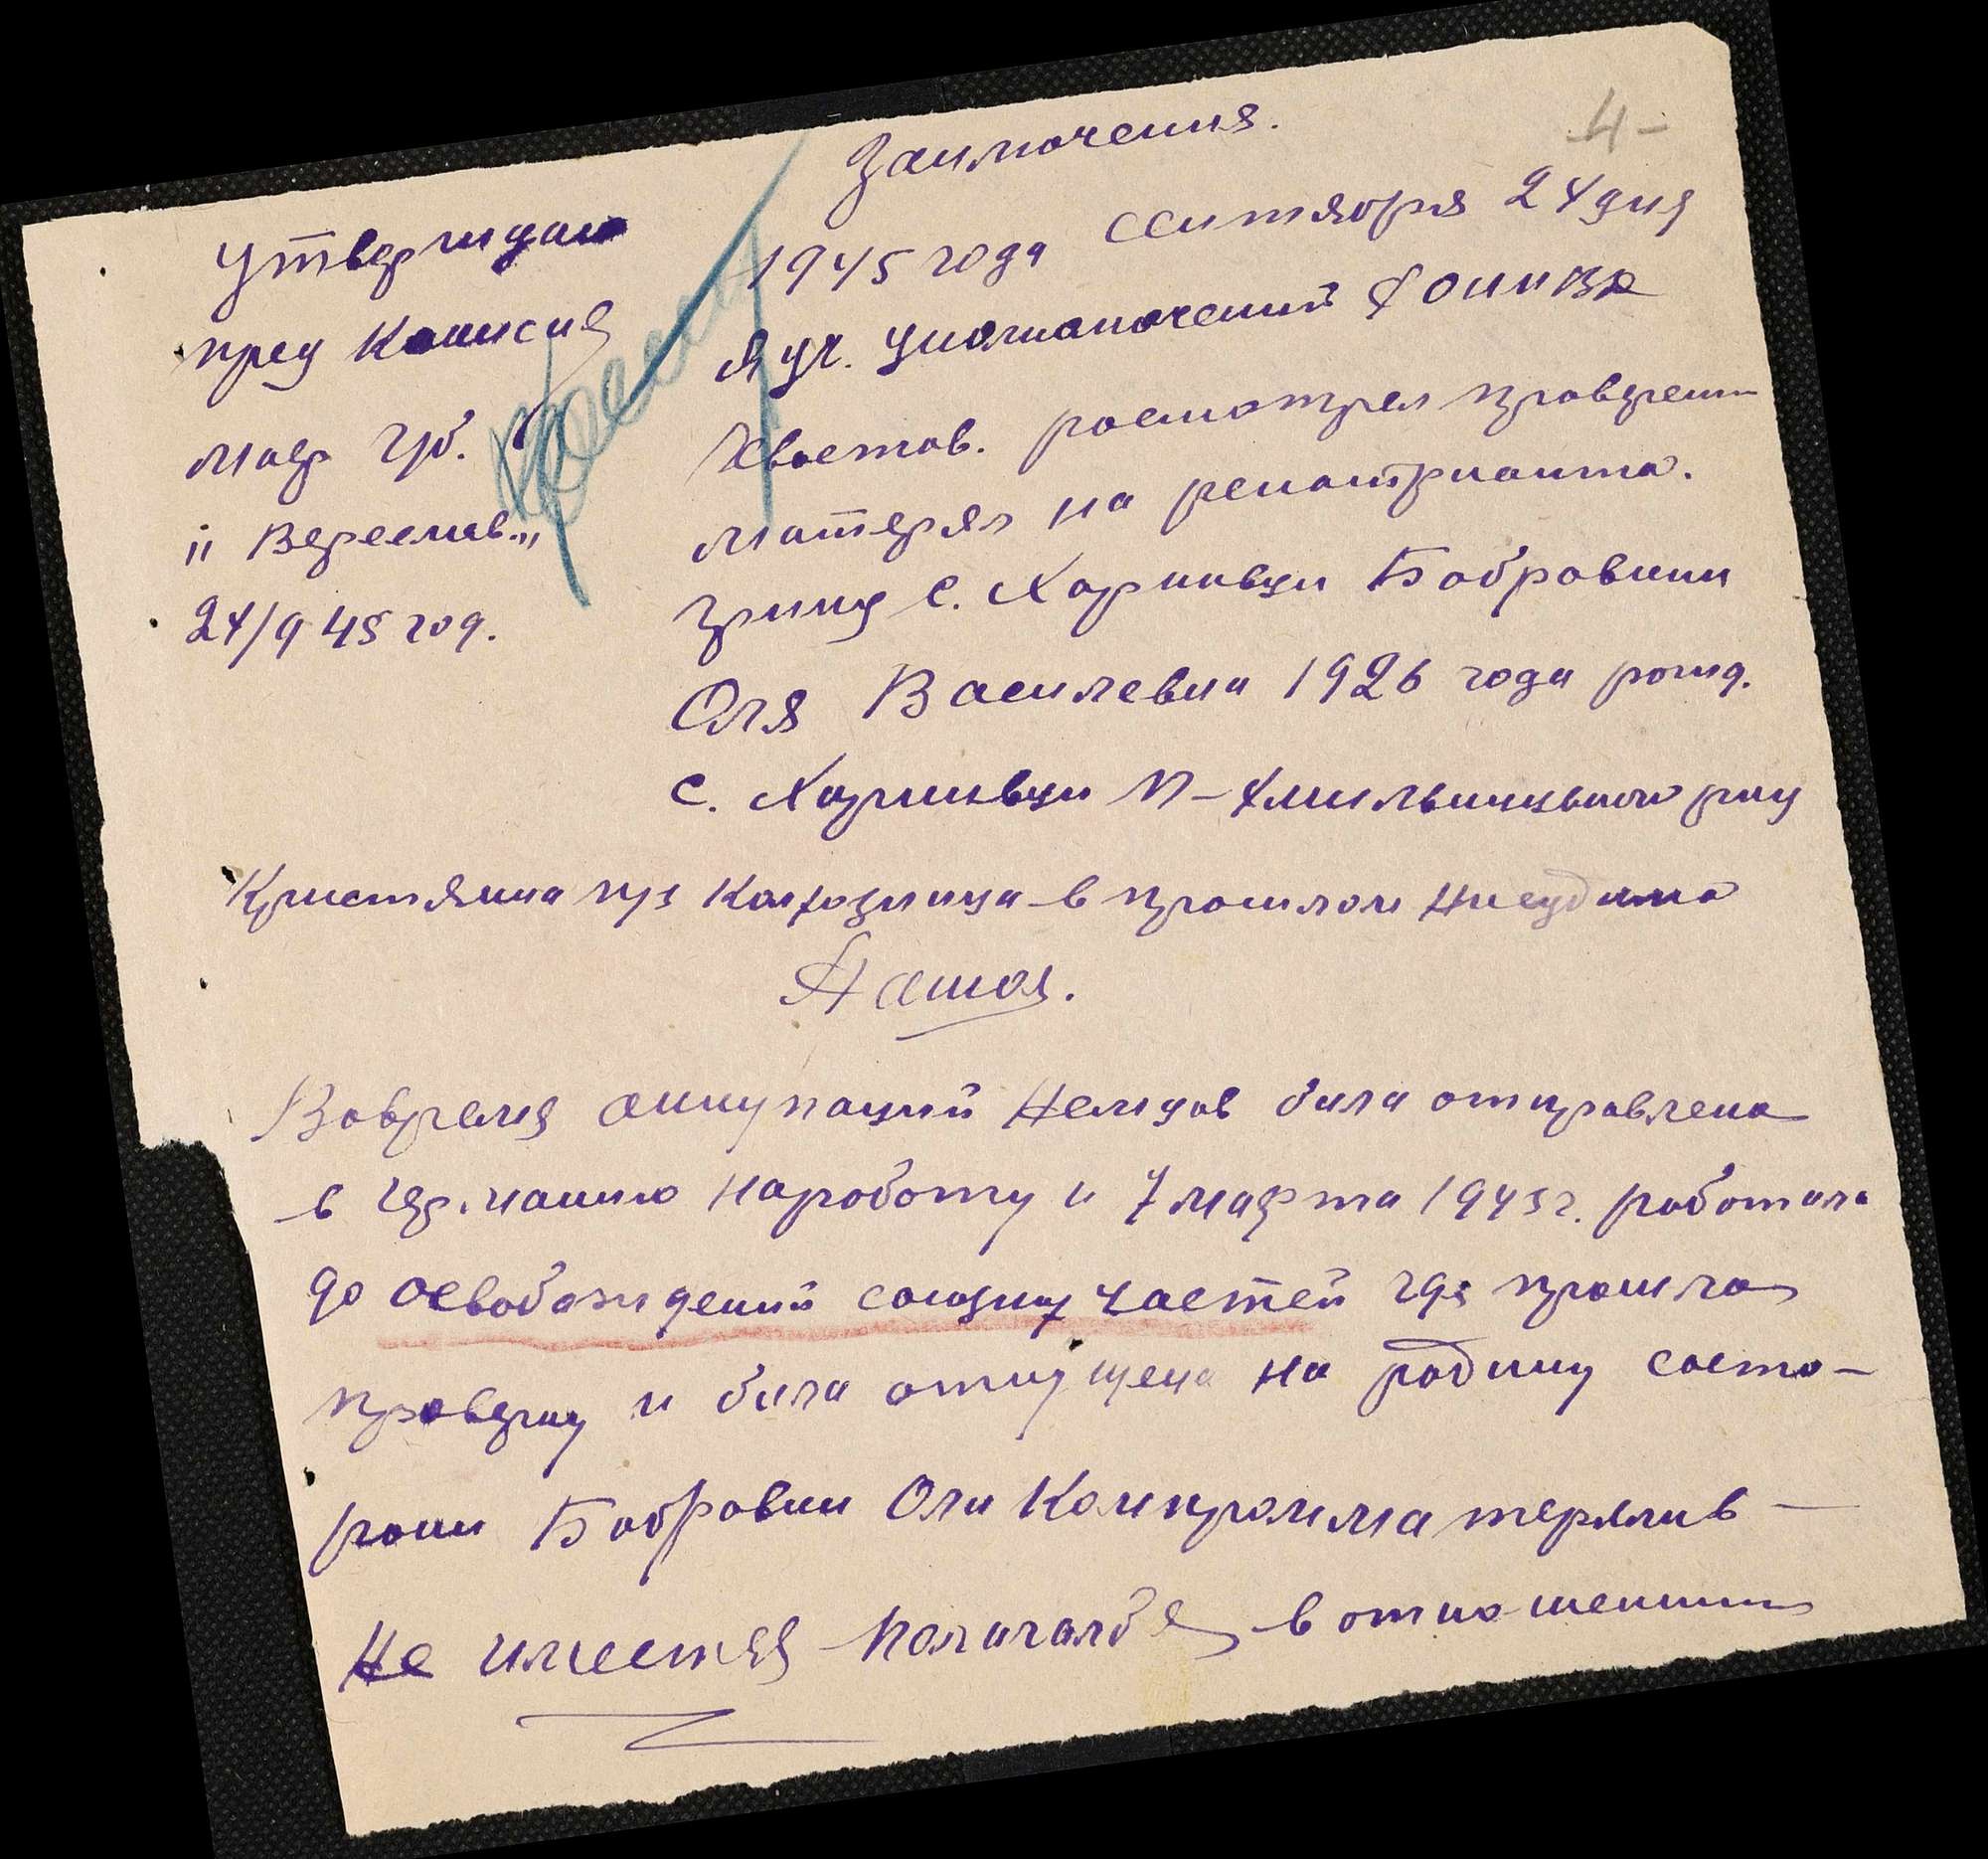 4-
Заключения.
Утверждаю
пред Комисия
маер гб.
"Вереемов."
24/9 45 год.
1945 года сентября 24 дня
Я уч. уполномоченый
Хвостов. росмотрел
матерял на репатрианта.
с. Харкивци Бобровник
Оля Василевна 1926 года рожд.
с. Харкивци П-Хмильницького
Кристянка из Колхозница в прошлом Нисудима
Нашол.
Вовремя аккупаций Немцов била отправлена
в Германию нароботу и 7 марта 1943 г. роботала
до освобождений союзних частей где прошла
проверку и била отпущена на родину состо-
рони Бобровник Оли Компромматерялив
Не имеется Полагалбя в отношении